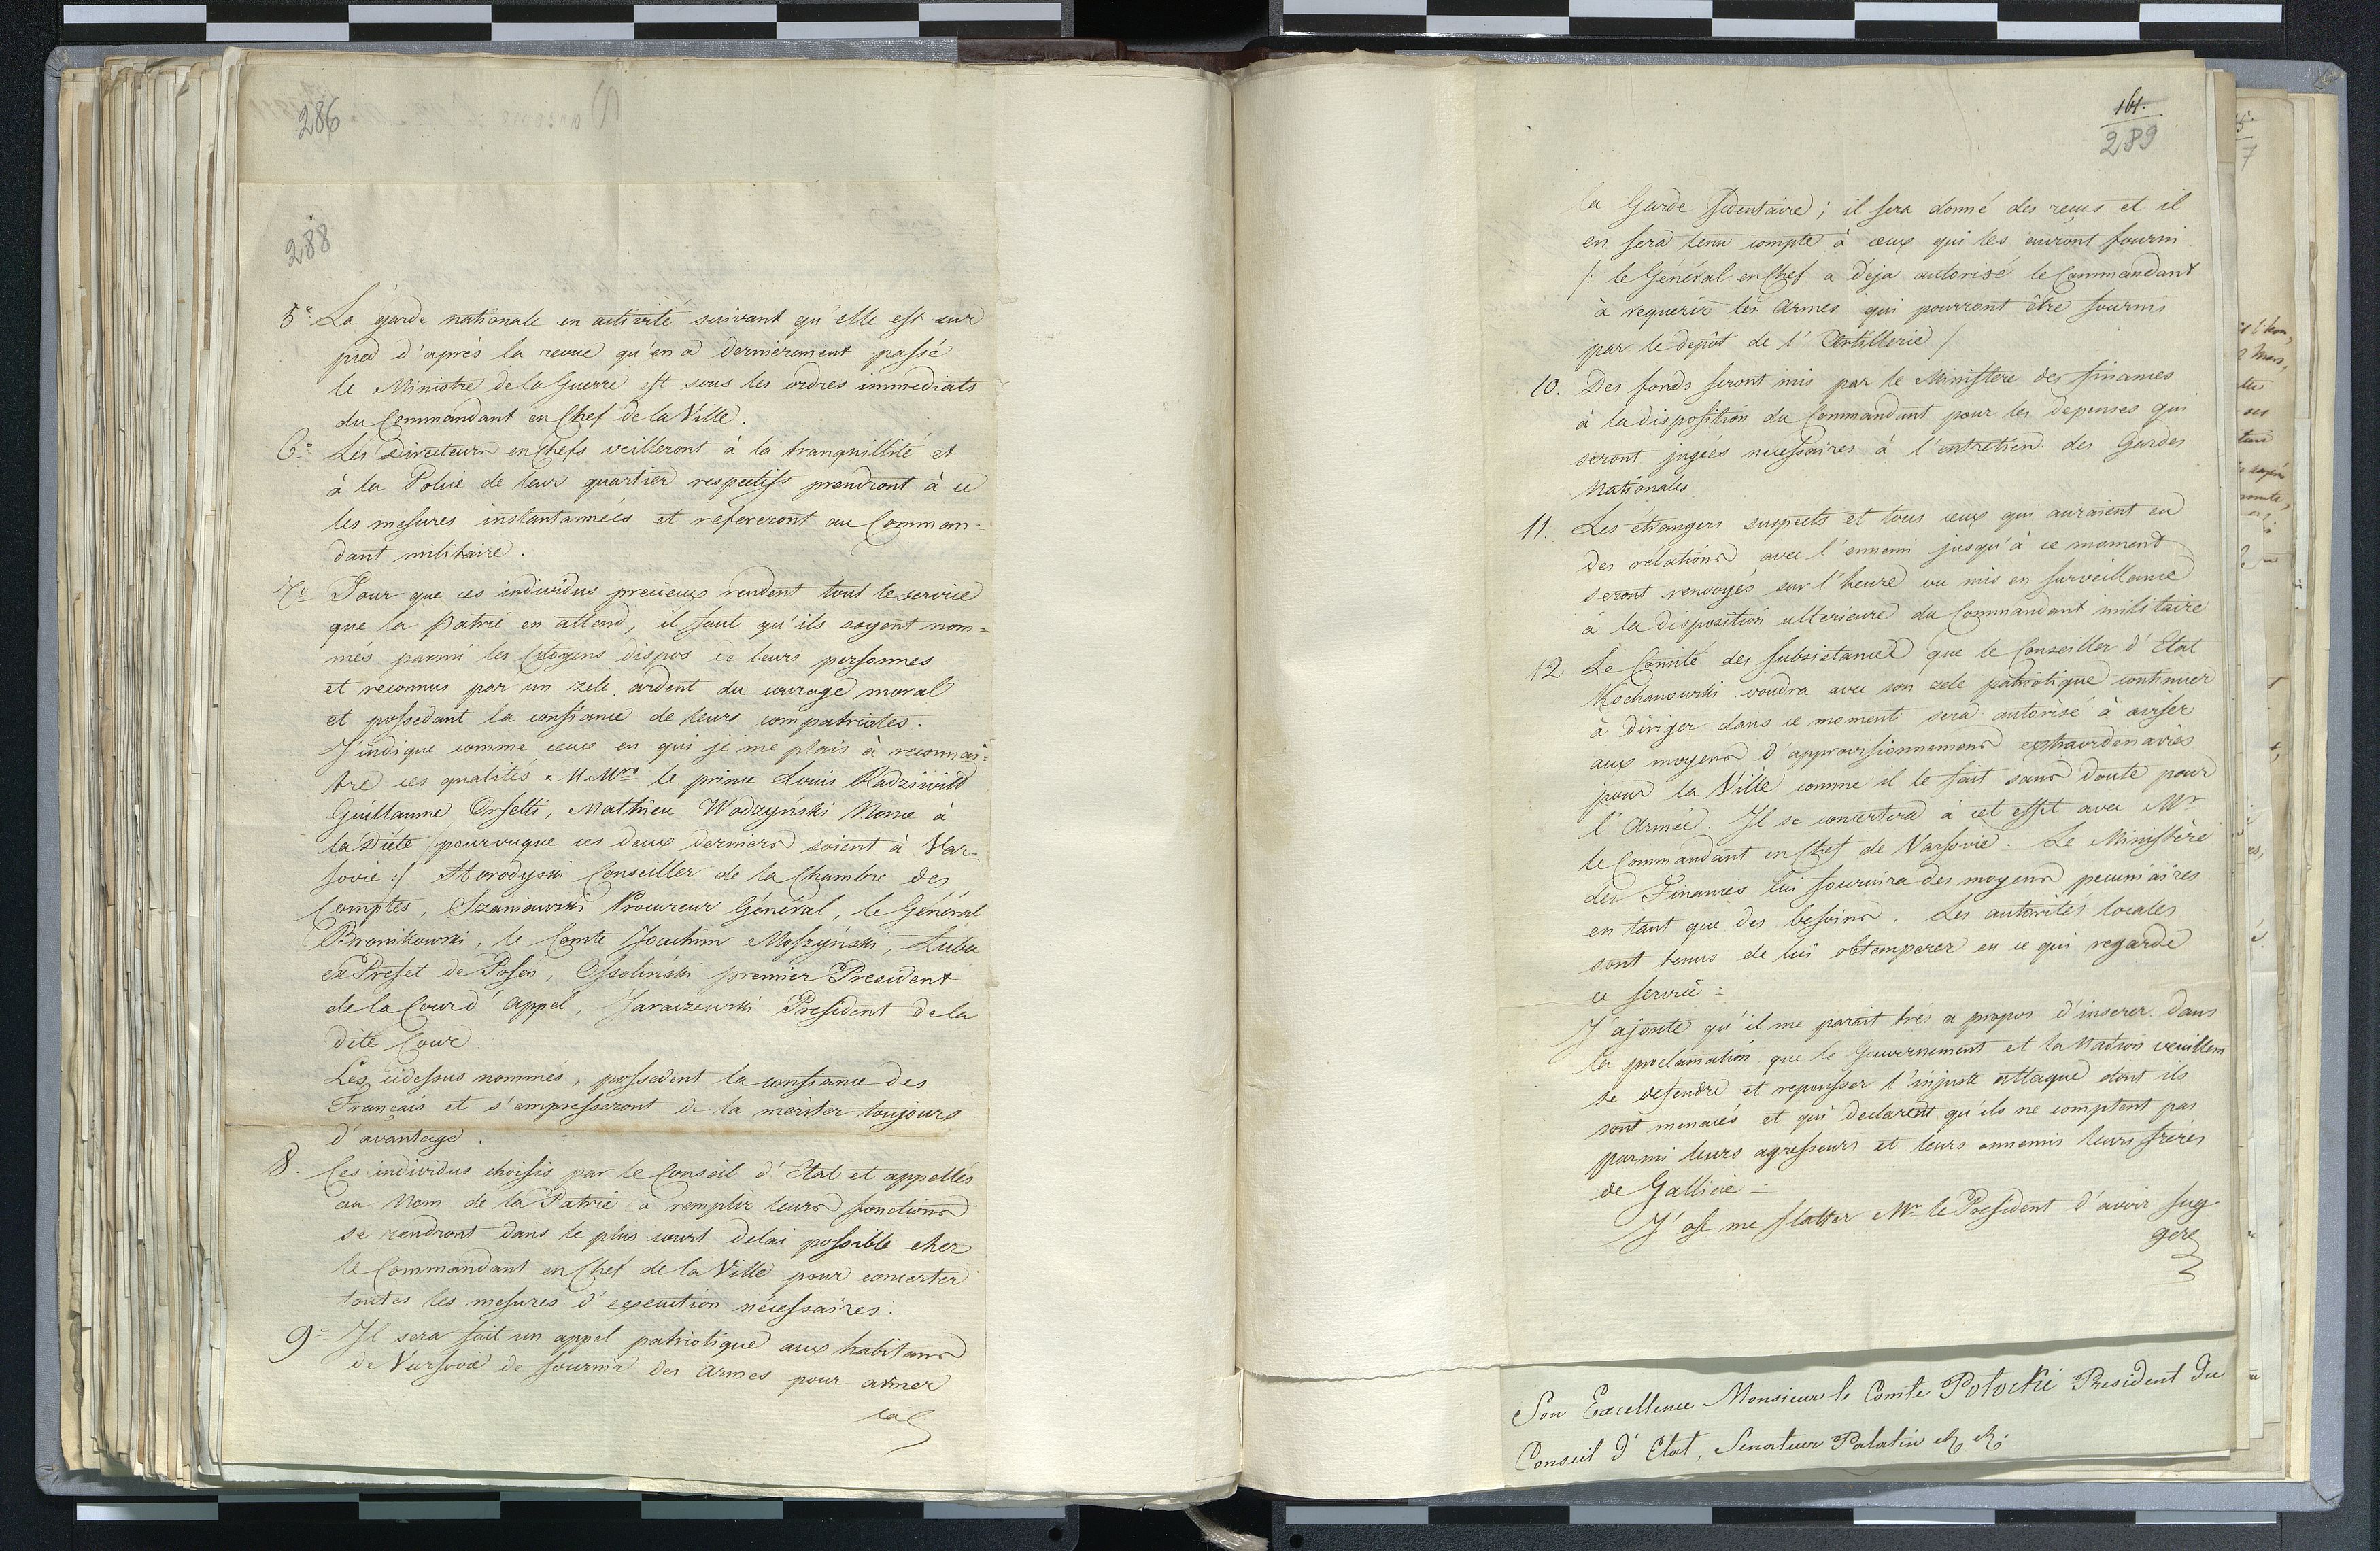 286
288
5º La garde nationale en activité suivant qu'elle est sur
pied d'après la revue qu'en a dernièrement passé
le Ministre de la Guerre est sous les ordres immediats
du Commandant en Chef de la Ville.
6º Les Directeurs en Chefs veilleront à la tranquillité et
à la Police de leur quartier respectifs prendront à ce
les mesures instantannées et refereront au Comman-
dant militaire.
7º Pour que ces individus precieux rendent tout le service
que la Patrie en attend, il faut qu'ils soyent nom=
més parmi les Citoyens dispos de leurs personnes
et reconnus par un zele ardent du courage moral
et possedant la confiance de leurs compatriotes.
J'indique comme ceux en qui je me plais à reconnai=
tre ces qualités M.Mrs le prince Louis Radziwill
Guillaume Orsetti, Mathieu Wodzyński Nonce à
la Diéte /: pourvuque ces deux derniers soient à Var=
sovie :/ Horodyski Conseiller de la Chambre des
Comptes, Szaniawski Procureur Général, le Général
Bronikowski, le Comte Joachim Moszyński, Luba
ex Prefet de Posen, Ossoliński premier President
de la Cour d'Appel, Jaraczewski President de la
dite Cour
Les cidessus nommés, possedent la confiance des
Français et s'empresseront de la meriter toujours
d'avantage.
8. Ces individus choisis par le Conseil d'Etat et appellés
au Nom de la Patrie a remplir leurs fonctions
se rendront dans le plus court delai possible chez
le Commandant en Chef de la Ville pour concerter
toutes les mesures d'execution nécessaires.
9º Il sera fait un appel patriotique aux habitans
de Varsovie de fournir des armes pour armer
la
161.
289
la Garde sedentaire; il sera donné des reçus et il
en sera tenu compte à ceux qui les auront fourni
/: le Général en Chef a déja autorisé le Commandant
à requerir les Armes qui pourront être fournis
par le depôt de l'Artillerie :/
10. Des fonds seront mis par le Ministere des finances
à la disposition du Commandant pour les depenses qui
seront jugées necessaires à l'entretien des Gardes
Nationales
11. Les étrangers suspects et tous ceux qui auraient eu
des relations avec l'ennemi jusqu'à ce moment
seront renvoyés sur l'heure ou mis en surveillance
à la disposition ulterieure du Commandant militaire
12 Le Comité des subsistances que le Conseiller d'Etat
Kochanowski voudra avec son zele patriotique continuer
à diriger dans ce moment sera autorisé à aviser
aux moyens d'approvisionnemens extraordinaires
pour la Ville comme il le fait sans doute pour
l'Armée. Il se concertera à cet effet avec Mr
le Commandant en Chef de Varsovie. Le Ministère
des Finances lui fournira des moyens pecuniaires
en tant que des besoins. Les autorités locales
sont tenus de lui obtemperer en ce qui regarde
ce service =
J'ajoute qu'il me parait très a propos d'inserer dans
la proclamation que le Gouvernement et la Nation veuillent
se defendre et repousser l'injuste attaque dont ils
sont menacés et qui declarent qu'ils ne comptent pas
parmi leurs agresseurs et leurs ennemis leurs frères
de Gallicie =
J'ose me flatter Mr le President d'avoir sug-
geré
Son Excellence Monsieur le Comte Potocki President du
Conseil d'Etat, Senateur Palatin &c &c: